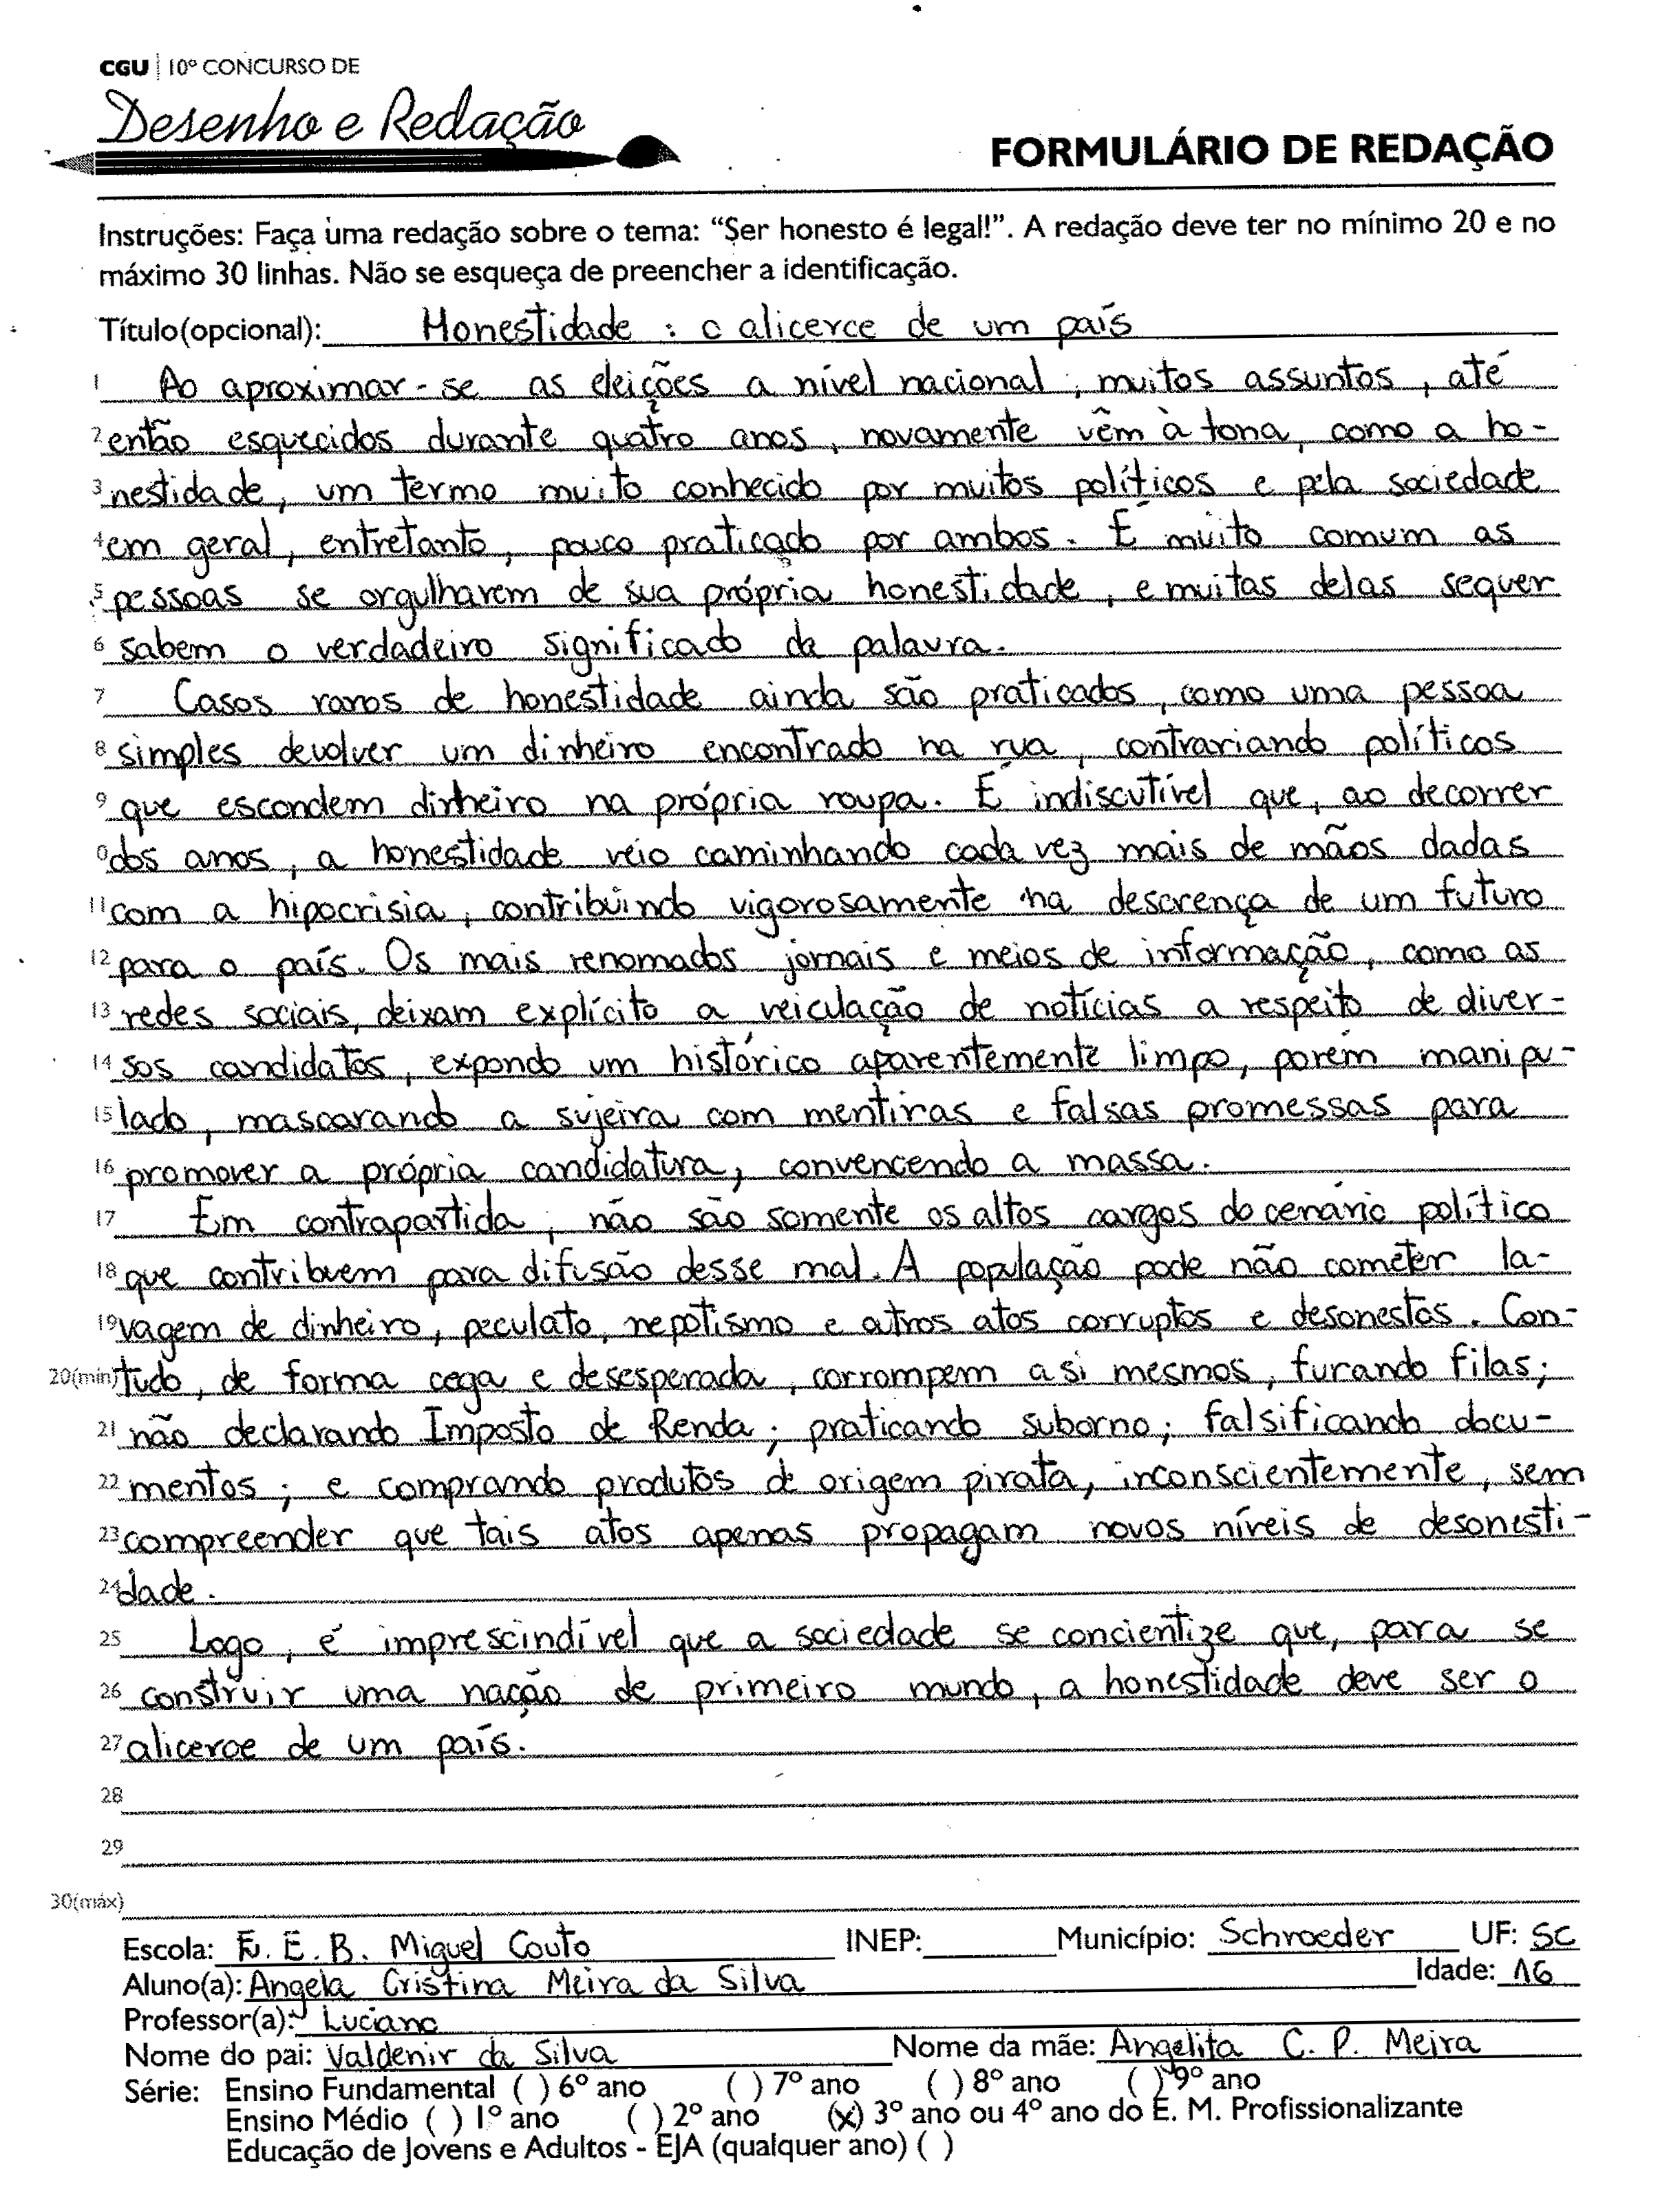 CGU | 10º CONCURSO DE
Desenho e Redação
FORMULÁRIO DE REDAÇÃO
Instruções: Faça uma redação sobre o tema: “Ser honesto é legal!”. A redação deve ter no mínimo 20 e no
máximo 30 linhas. Não se esqueça de preencher a identificação.
Título(opcional): Honestidade : o alicerce de um país
1 Ao aproximar-se as eleições a nível nacional, muitos assuntos, até
2 então esquecidos durante quatro anos, novamente vêm à tona, como a ho-
3 nestidade, um termo muito conhecido por muitos políticos e pela sociedade
4 em geral, entretanto, pouco praticado por ambos. É muito comum as
5 pessoas se orgulharem de sua própria honestidade, e muitas delas sequer
6 sabem o verdadeiro significado da palavra.
7 Casos raros de honestidade ainda são praticados, como uma pessoa
8 simples devolver um dinheiro encontrado na rua, contrariando políticos
9 que escondem dinheiro na própria roupa. É indiscutível que, ao decorrer
0 dos anos, a honestidade veio caminhando cada vez mais de mãos dadas
11 com a hipocrisia, contribuindo vigorosamente na descrença de um futuro
12 para o país. Os mais renomados jornais e meios de informação, como as
13 redes sociais, deixam explícito a veiculação de notícias a respeito de diver-
14 sos candidatos, expondo um histórico aparentemente limpo, porém manipu-
15 lado, mascarando a sujeira com mentiras e falsas promessas para
16 promover a própria candidatura, convencendo a massa.
17 Em contrapartida, não são somente os altos cargos do cenário político
18 que contribuem para difusão desse mal. A população pode não cometer la-
19 vagem de dinheiro, peculato, nepotismo e outros atos corruptos e desonestos. Con-
20(mín) tudo, de forma cega e desesperada, corrompem a si mesmos, furando filas;
21 não declarando Imposto de Renda; praticando suborno; falsificando docu-
22 mentos; e comprando produtos de origem pirata, inconscientemente, sem
23 compreender que tais atos apenas propagam novos níveis de desonesti-
24 dade.
25 Logo, é imprescindível que a sociedade se concientize que, para se
26 construir uma nação de primeiro mundo, a honestidade deve ser o
27 alicerce de um país.
28
29
30(máx)
Escola: E. E. B. Miguel Couto INEP: Município: Schroeder UF: SC
Aluno(a): Angela Cristina Meira da Silva Idade: 16
Professor(a): Luciano
Nome do pai: Valdenir da Silva Nome da mãe: Angelita C. P. Meira
Série: Ensino Fundamental ( ) 6º ano ( ) 7º ano ( ) 8º ano ( ) 9º ano
Ensino Médio ( ) 1º ano ( ) 2º ano (x) 3º ano ou 4º ano do E. M. Profissionalizante
Educação de Jovens e Adultos - EJA (qualquer ano) ( )